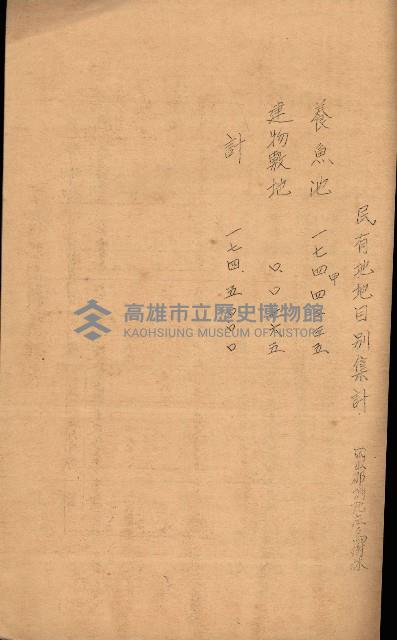 民有地地目別集計
養魚池 一七四甲四三五
建物敷地 〇.〇六五
計 一七四.五〇〇〇
高雄市立歷史博物館
KAOHSIUNG MUSEUM OF HISTORY